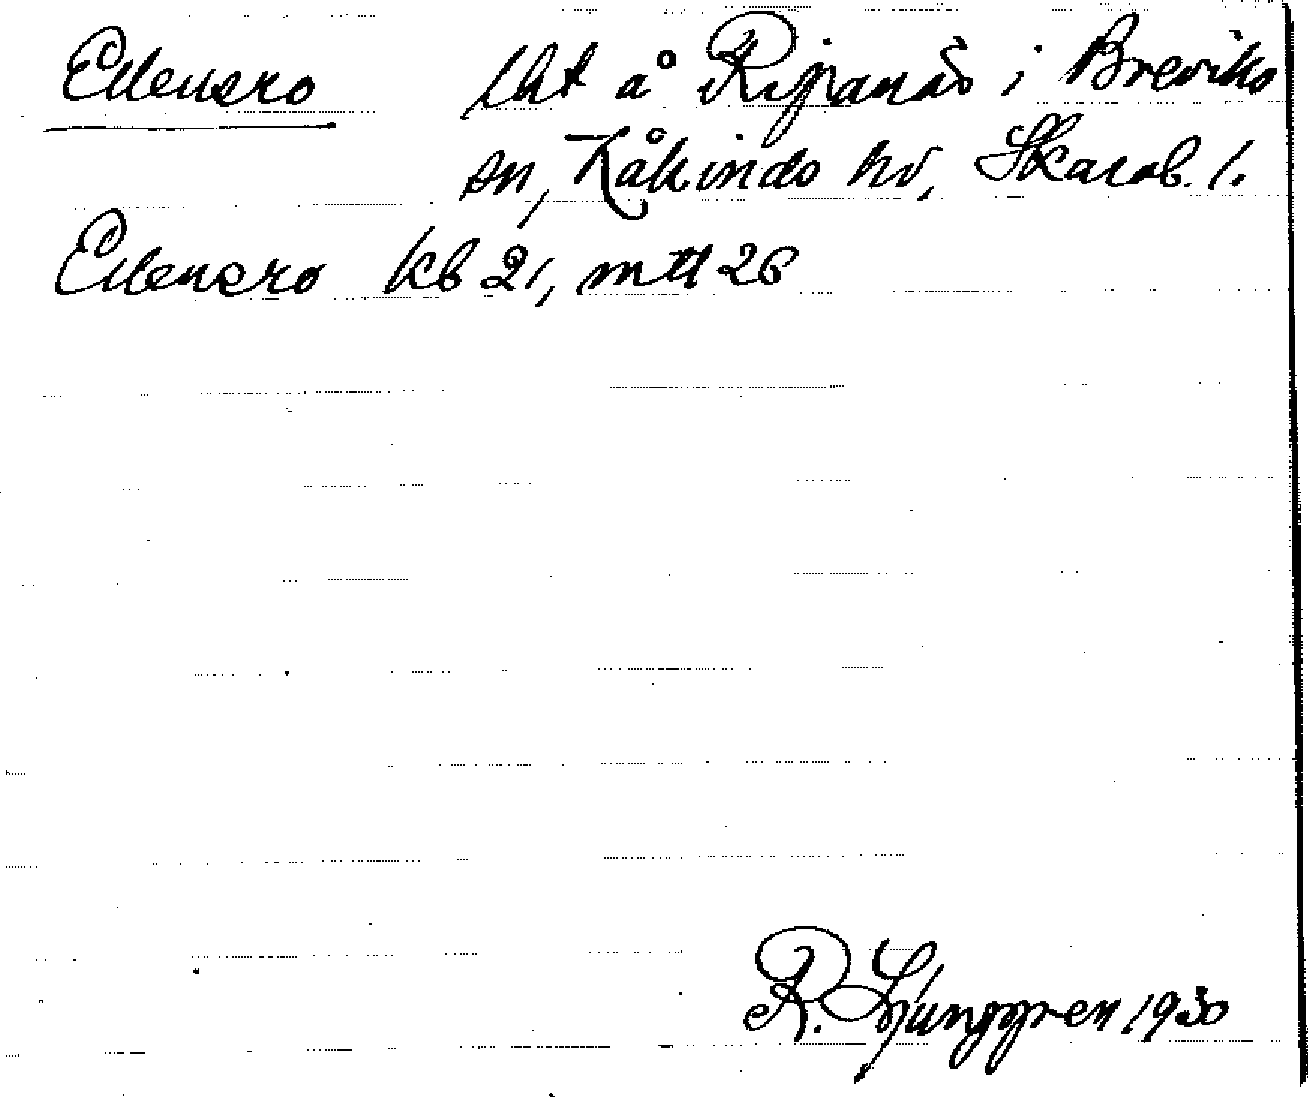 Ellensro lht å Ripanäs i Breviks
sn, Kåkinds hd, Skarab. l.
Ellensro kb 21, mtl 26
R. Ljunggren 1930